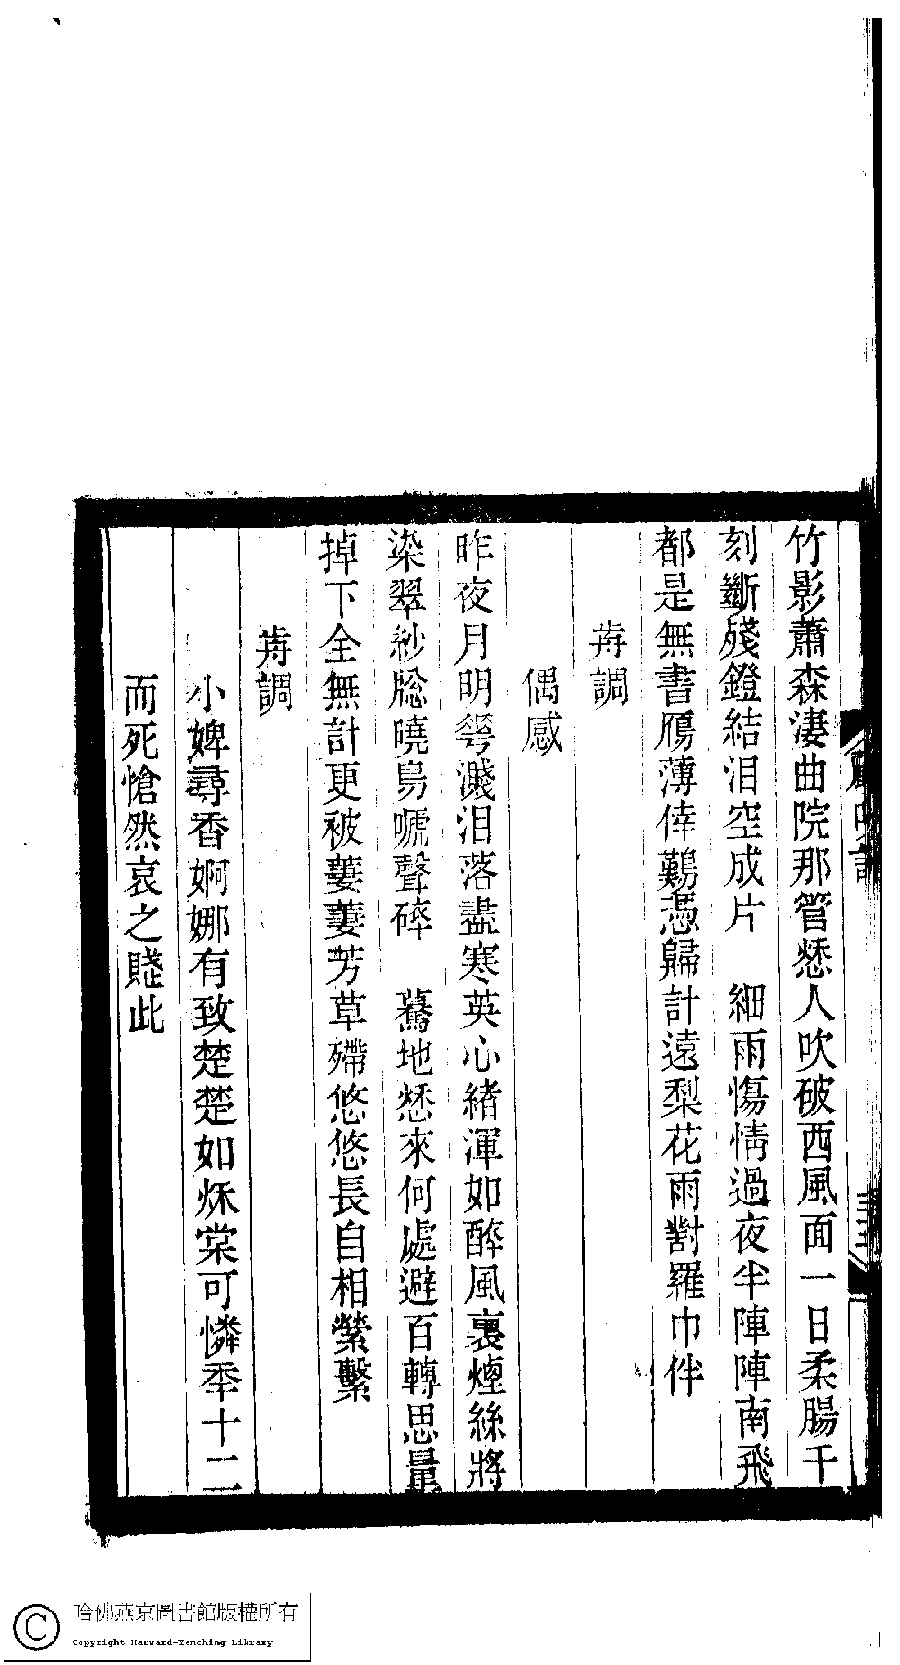 竹影蕭森淒曲院那管愁人吹破西風面一日柔腸千
刻斷殘鐙結泪空成片　細雨傷情過夜半陣陣南飛
都是無書鴈薄倖難憑歸計遠梨花雨對羅巾伴
歬調
偶感
昨夜月明雩濺泪落盡寒英心緒渾如醉風裏煙絲將
染翠紗牕曉鳥嗁聲碎　驀地愁來何處避百轉思量
掉下全無計更被萋萋芳草殢悠悠長自相縈繫
歬調
小婢尋香婀娜有致楚楚如烁棠可憐秊十二
而死愴然哀之賤此
哈佛燕京圖書館版權所有
Copyright Harvard-Yenching Library